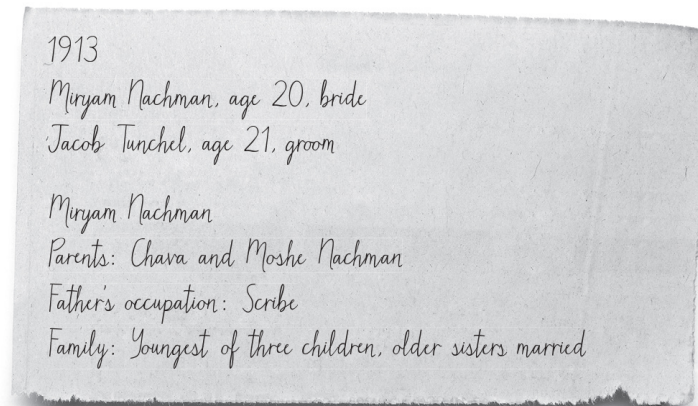 1913
Miryam Nachman, age 20, bride
Jacob Tunchel, age 21, groom
Miryam Nachman
Parents: Chava and Moshe Nachman
Father's occupation: Scribe
Family: Youngest of three children, older sisters married